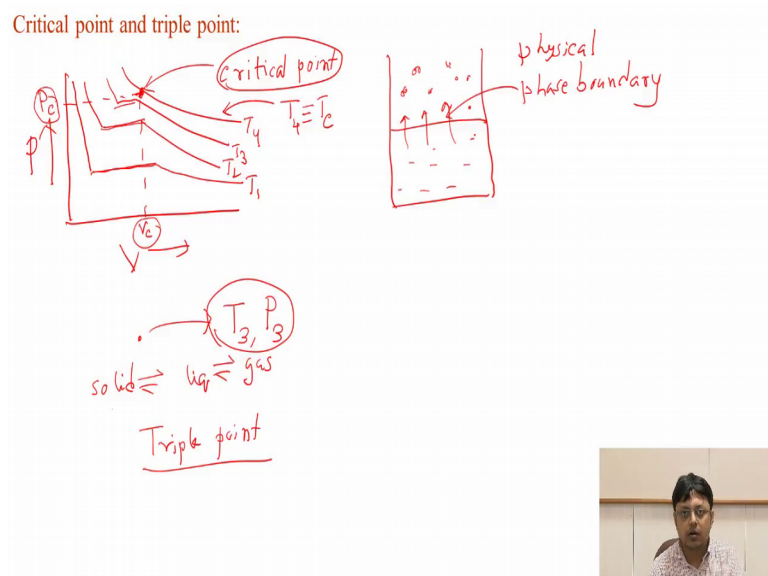 Critical point and triple point:
critical point
Pc
P
T4 ≡ Tc
T4
T3
T2
T1
Vc
V
physical
phase boundary
T3, P3
solid ⇌ liq ⇌ gas
Triple point